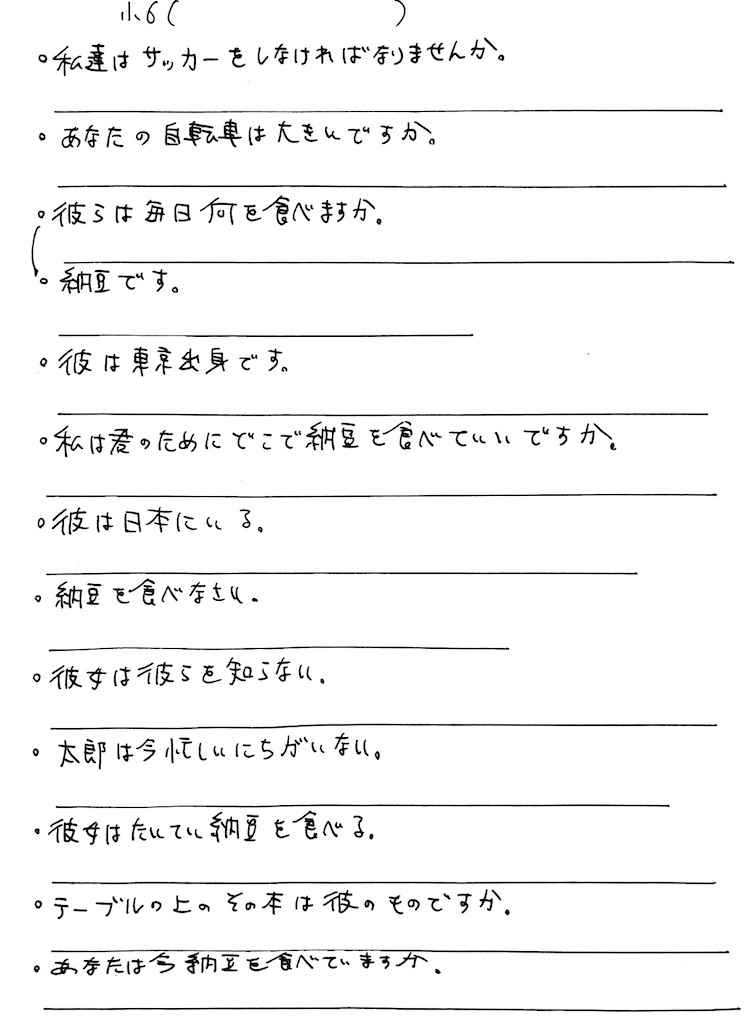 小6(　　　　　)
。私達はサッカーをしなければなりませんか。
。あなたの自転車は大きいですか。
。彼らは毎日何を食べますか。
。納豆です。
。彼は東京出身です。
。私は君のためにどこで納豆を食べていいですか。
。彼は日本にいる。
。納豆を食べなさい。
。彼女は彼らを知らない。
。太郎は今忙しいにちがいない。
。彼女はたいてい納豆を食べる。
。テーブルの上のその本は彼のものですか。
。あなたは今納豆を食べていますか。